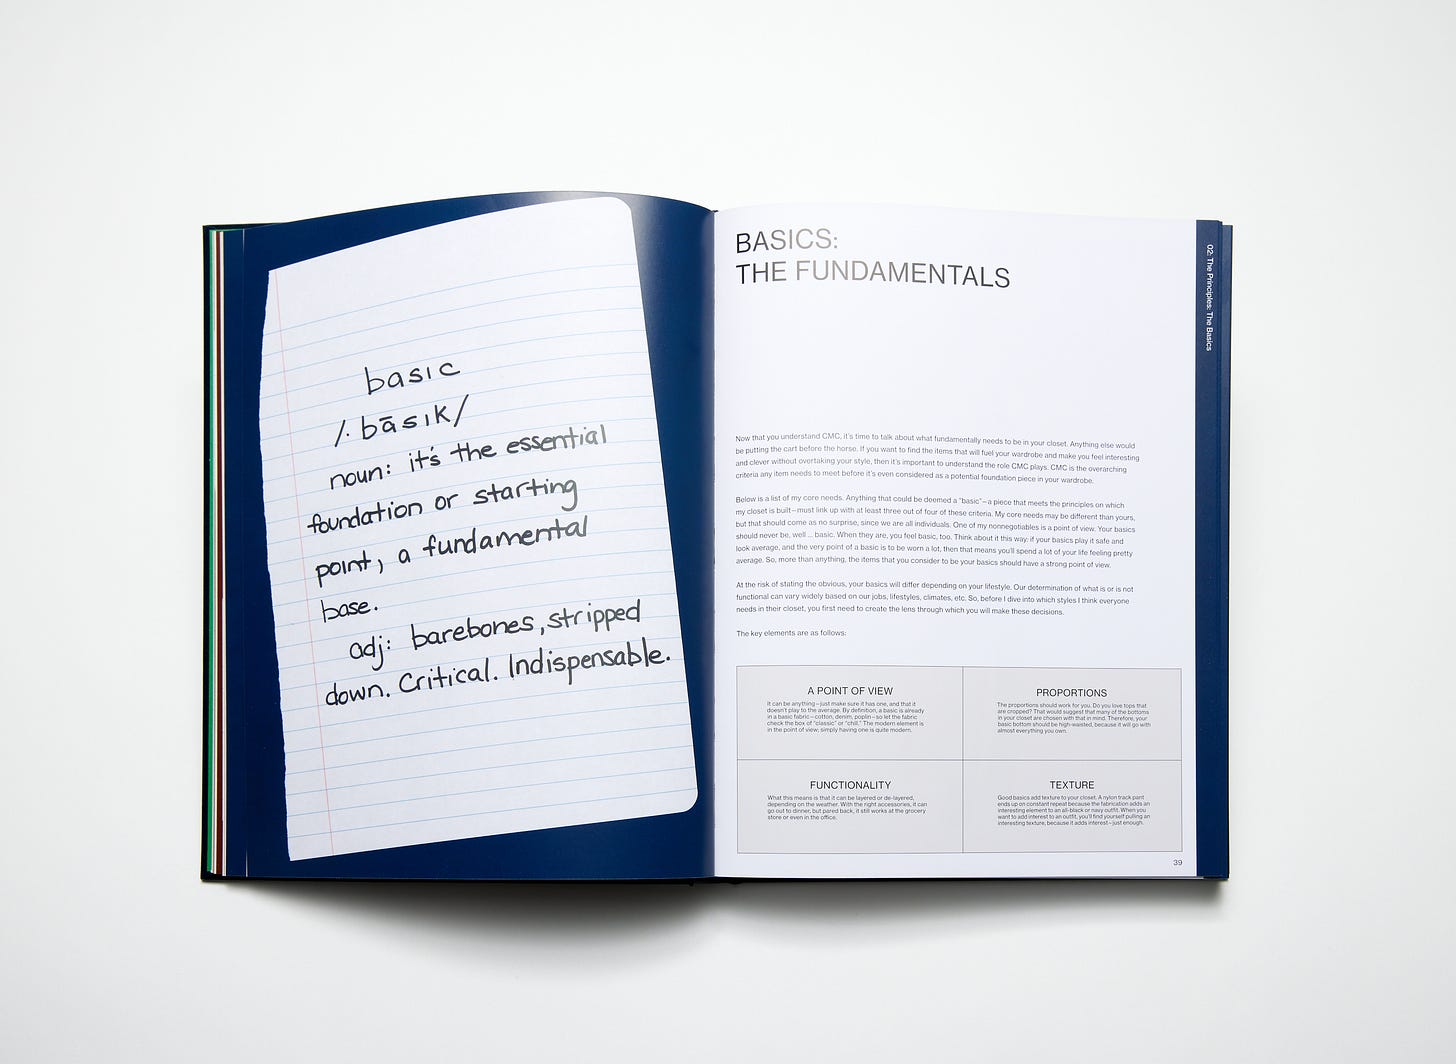 basic
/·bāsik/
noun: it's the essential
foundation or starting
point, a fundamental
base.
adj: barebones, stripped
down. Critical. Indispensable.
BASICS:
THE FUNDAMENTALS
Now that you understand CMC, it's time to talk about what fundamentally needs to be in your closet. Anything else would
be putting the cart before the horse. If you want to find the items that will fuel your wardrobe and make you feel interesting
and clever without overtaking your style, then it's important to understand the role CMC plays. CMC is the overarching
criteria any item needs to meet before it's even considered as a potential foundation piece in your wardrobe.
Below is a list of my core needs. Anything that could be deemed a "basic"—a piece that meets the principles on which
my closet is built—must link up with at least three out of four of these criteria. My core needs may be different than yours,
but that should come as no surprise, since we are all individuals. One of my nonnegotiables is a point of view. Your basics
should never be, well ... basic. When they are, you feel basic, too. Think about it this way: if your basics play it safe and
look average, and the very point of a basic is to be worn a lot, then that means you'll spend a lot of your life feeling pretty
average. So, more than anything, the items that you consider to be your basics should have a strong point of view.
At the risk of stating the obvious, your basics will differ depending on your lifestyle. Our determination of what is or is not
functional can vary widely based on our jobs, lifestyles, climates, etc. So, before I dive into which styles I think everyone
needs in their closet, you first need to create the lens through which you will make these decisions.
The key elements are as follows:
A POINT OF VIEW
It can be anything—just make sure it has one, and that it
doesn't play to the average. By definition, a basic is already
in a basic fabric—cotton, denim, poplin—so let the fabric
check the box of "classic" or "chill." The modern element is
in the point of view; simply having one is quite modern.
PROPORTIONS
The proportions should work for you. Do you love tops that
are cropped? That would suggest that many of the bottoms
in your closet are chosen with that in mind. Therefore, your
basic bottom should be high-waisted, because it will go with
almost everything you own.
FUNCTIONALITY
What this means is that it can be layered or de-layered,
depending on the weather. With the right accessories, it can
go out to dinner, but pared back, it still works at the grocery
store or even in the office.
TEXTURE
Good basics add texture to your closet. A nylon track pant
ends up on constant repeat because the fabrication adds an
interesting element to an all-black or navy outfit. When you
want to add interest to an outfit, you'll find yourself pulling an
interesting texture, because it adds interest—just enough.
39
02: The Principles: The Basics